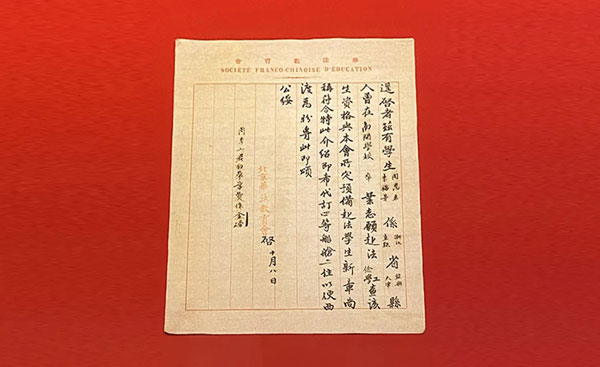 華法教育會
SOCIÉTÉ FRANCO-CHINOISE D'ÉDUCATION
逕啓者茲有學生周恩來李福景係浙江直隸省紹興天津縣
人曾在南開學校卒業志願赴法儉學工查該
生資格與本會所定預備赴法學生新章尚
稱符合特此介紹即希代訂四等船艙二位以便西
渡為祈專此即頌
公綏
北京華法教育會啓十月八日
周李二君